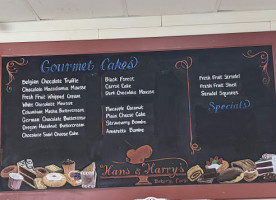 Gourmet Cakes
Belgian Chocolate Truffle
Chocolate Macadamia Mousse
Fresh Fruit Whipped Cream
White Chocolate Mousse
Columbian Mocha Buttercream
German Chocolate Buttercream
Oregon Hazelnut Buttercream
Chocolate Swirl Cheese Cake
Black Forest
Carrot Cake
Dark Chocolate Mousse
Pineapple Coconut
Plain Cheese Cake
Strawberry Bombe
Amaretto Bombe
Fresh Fruit Strudel
Fresh Fruit Shell
Strudel Squares
Specials
Hans & Harry's
Bakery